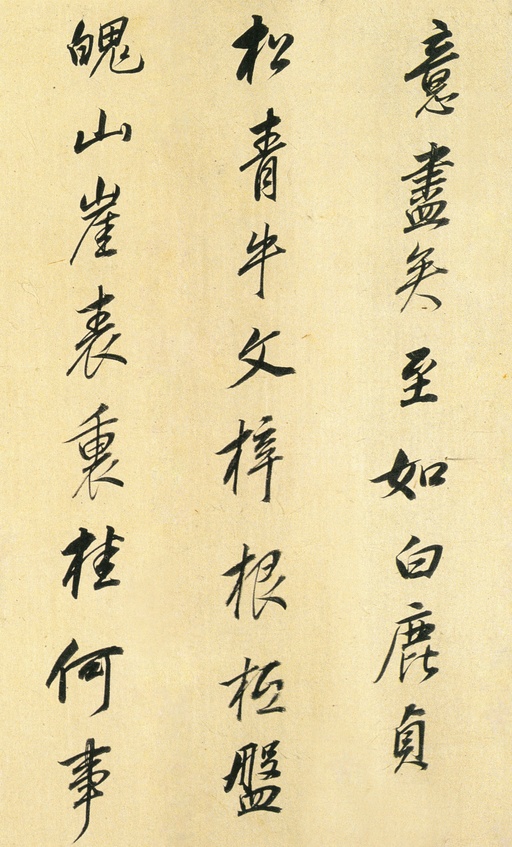 意盡矣至如白鹿貞
松青牛文梓根柢盤
魄山崖表裏桂何事